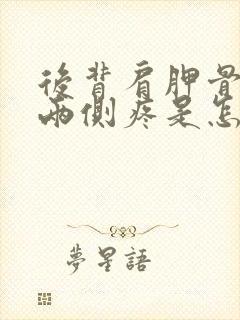 後背肩胛骨
兩側疼是怎
夢星語